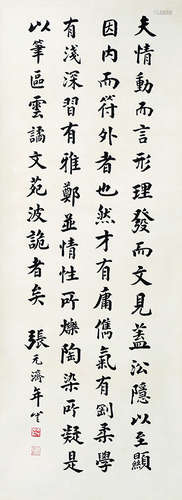 夫情動而言形理發而文見蓋沿隱以至顯
因內而符外者也然才有庸儁氣有剛柔學
有淺深習有雅鄭並情性所鑠陶染所凝是
以筆區雲譎文苑波詭者矣 張元濟